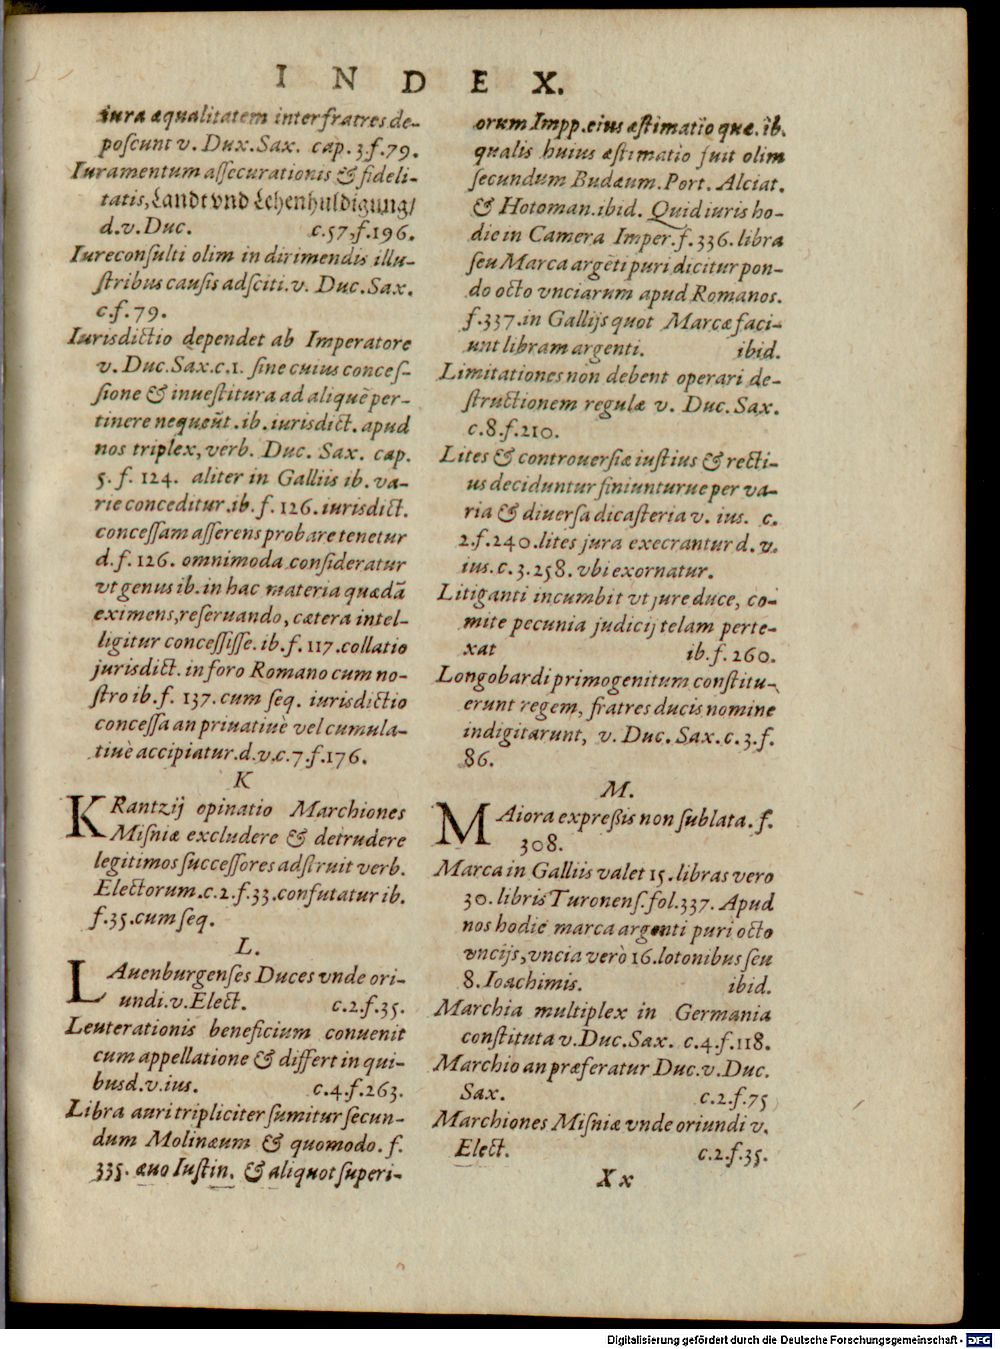 INDEX.
iura æqualitatem inter fratres de-
poscunt v. Dux. Sax. cap. 3. f. 79.
Iuramentum assecurationis & fideli-
tatis, Landt vnd Lehenhuldigung/
d. v. Duc. c. 57, f. 196.
Iureconsulti olim in dirimendis illu-
stribus causis adsciti. v. Duc. Sax.
c. f. 79.
Iurisdictio dependet ab Imperatore
v. Duc. Sax. c. 1. sine cuius conces-
sione & inuestitura ad aliquẽ per-
tinere nequeũt. ib. iurisdict. apud
nos triplex, verb. Duc. Sax. cap.
5. f. 124. aliter in Galliis ib. va-
rie conceditur. ib. f. 126. iurisdict.
concessam asserens probare tenetur
d. f. 126. omnimoda consideratur
vt genus ib. in hac materia quædã
eximens, reseruando, cætera intel-
ligitur concessisse. ib. f. 117. collatio
jurisdict. in foro Romano cum no-
stro ib. f. 137. cum seq. iurisdictio
concessa an priuatiuè vel cumula-
tiuè accipiatur. d. v. c. 7. f. 176.
K
KRantzij opinatio Marchiones
Misniæ excludere & detrudere
legitimos successores adstruit verb.
Electorum. c. 2. f. 33. confutatur ib.
f. 35. cum seq.
L.
LAuenburgenses Duces vnde ori-
undi. v. Elect. c. 2. f. 35.
Leuterationis beneficium conuenit
cum appellatione & differt in qui-
busd. v. ius. c. 4. f. 263.
Libra auri tripliciter sumitur secun-
dum Molinæum & quomodo. f.
335. æuo Iustin. & aliquot superi-
orum Impp. eius æstimatio quæ. ib.
qualis huius æstimatio fuit olim
secundum Budæum. Port. Alciat.
& Hotoman. ibid. Quid iuris ho-
die in Camera Imper. f. 336. libra
seu Marca argẽti puri dicitur pon-
do octo vnciarum apud Romanos.
f. 337. in Gallijs quot Marcæ faci-
unt libram argenti. ibid.
Limitationes non debent operari de-
structionem regulæ v. Duc. Sax.
c. 8. f. 210.
Lites & controuersiæ iustius & recti-
us deciduntur finiunturue per va-
ria & diuersa dicasteria v. ius. c.
2. f. 240. lites jura execrantur d. v.
ius. c. 3. 258. vbi exornatur.
Litiganti incumbit vt jure duce, co-
mite pecunia judicij telam perte-
xat ib. f. 260.
Longobardi primogenitum constitu-
erunt regem, fratres ducis nomine
indigitarunt, v. Duc. Sax. c. 3. f.
86.
M.
MAiora expreßis non sublata. f.
308.
Marca in Galliis valet 15. libras vero
30. libris Turonens. fol. 337. Apud
nos hodie marca argenti puri octo
vncijs, vncia verò 16. lotonibus seu
8. Ioachimis. ibid.
Marchia multiplex in Germania
constituta v. Duc. Sax. c. 4. f. 118.
Marchio an præferatur Duc. v. Duc.
Sax. c. 2. f. 75
Marchiones Misniæ vnde oriundi v.
Elect. c. 2. f. 35.
Xx
Digitalisierung gefördert durch die Deutsche Forschungsgemeinschaft - DFG